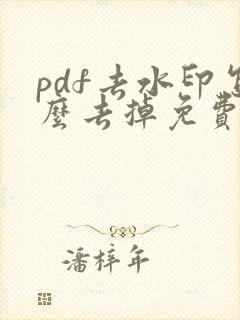 pdf去水印怎
麼去掉免費
潘梓年